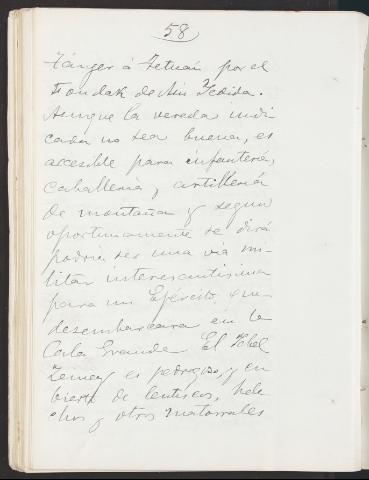 58
Tánger á Tetuán por el
Fondak de Ain Yedida.
Aunque la vereda indi
cada no sea buena, es
accesible para infantería,
caballería, y artillería
de montaña y segun
oportunamente se dirá
podria ser una via mi-
litar interesantisima
para un Ejército que
desembarcara en la
Cala Grande. El Yebel
es pedregoso, y cu
bierto de lentiscos, hele
chos y otros matorrales